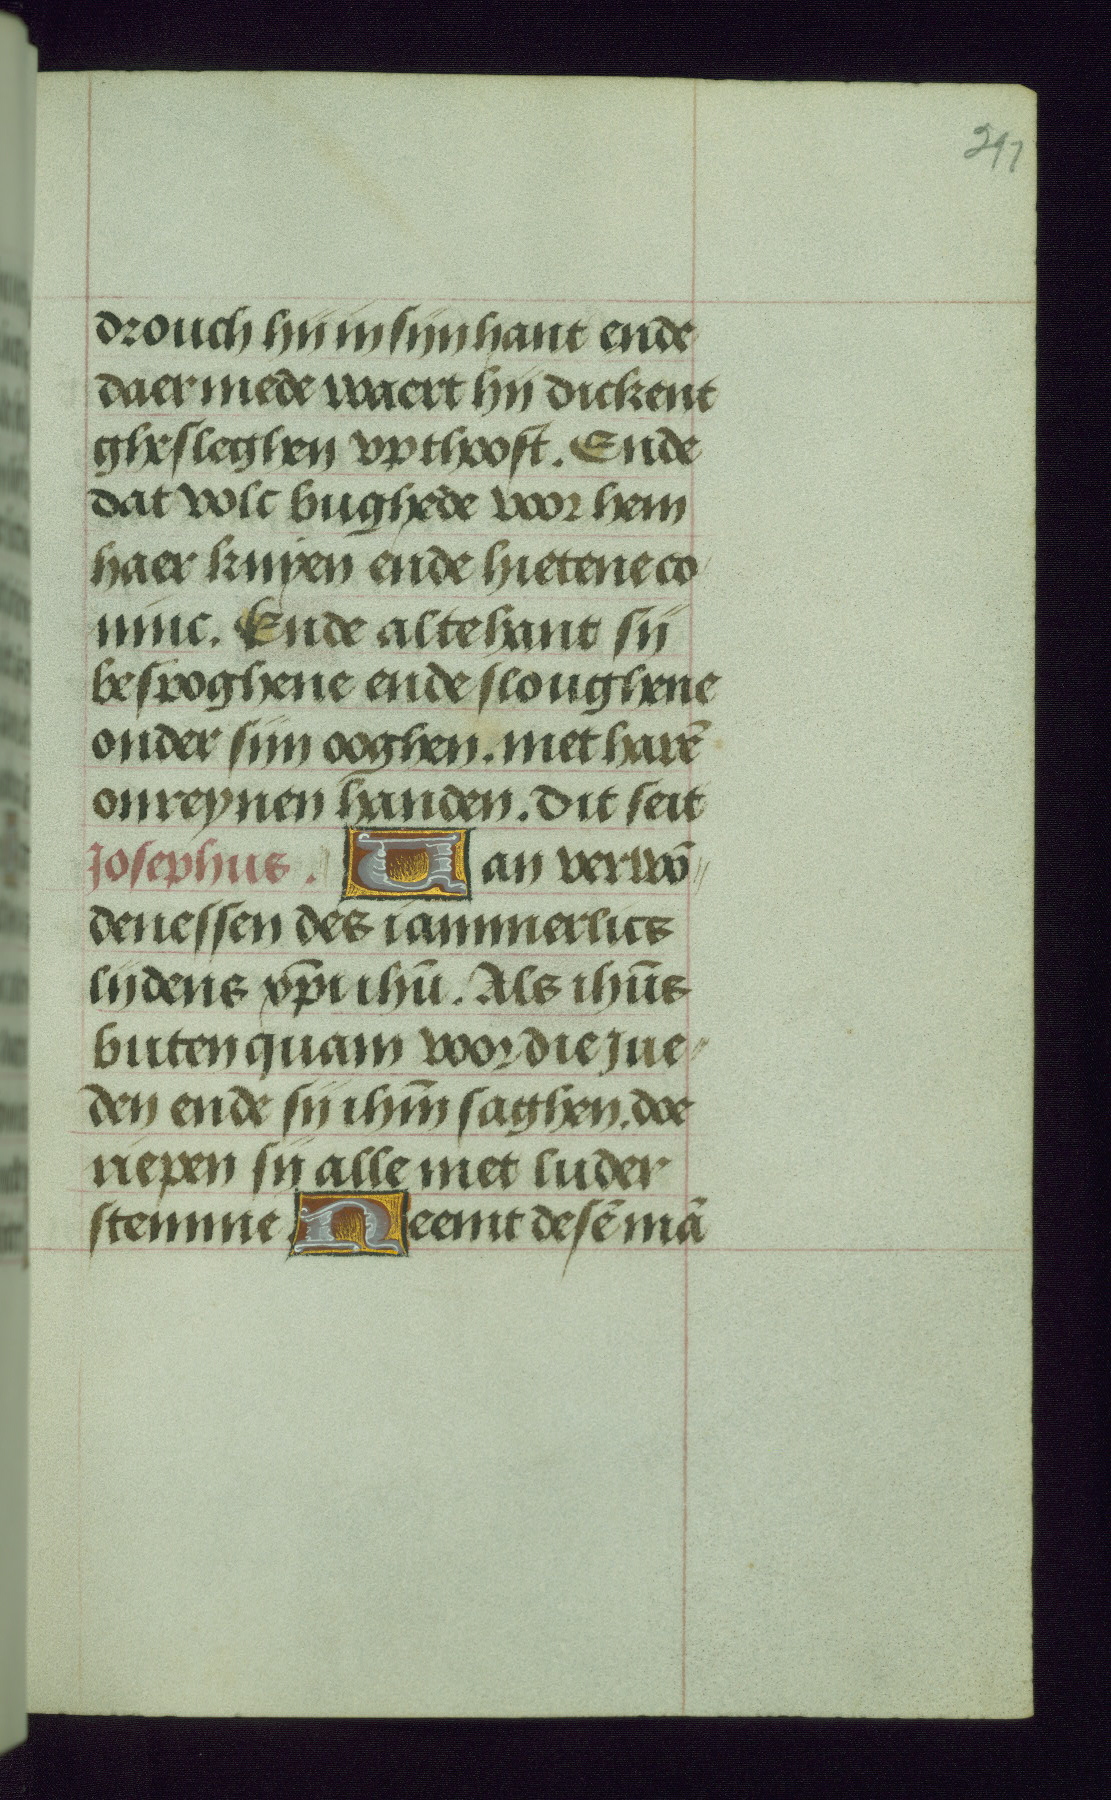 297
drouch hij in sijn hant ende
daer mede waert hij dickent
ghesleghen vp thooft. Ende
dat volc bughede voor hem
haer knyen ende hietene co
ninc. Ende altehant sij
bespoghene ende sloughene
onder sijn ooghen. met harē
onreynen handen. Dit seit
Josephus. Van verwō
denessen des iammerlics
lijdens xp̄i ihū. Als ihūs
buten quam voor die Jue
den ende sij ihm̄ saghen. doe
riepen sij alle met luder
stemme Neemt desē mā